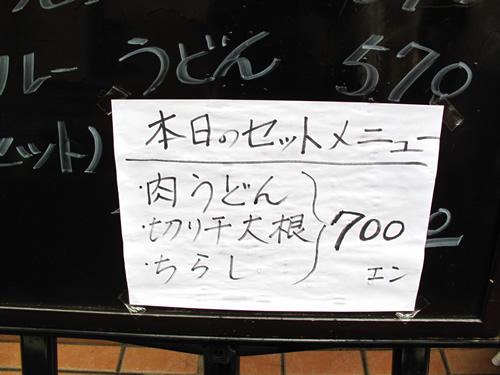 ルー うどん 570
セット)
本日のセットメニュー
・肉うどん
・切り干大根
・ちらし
700
エン